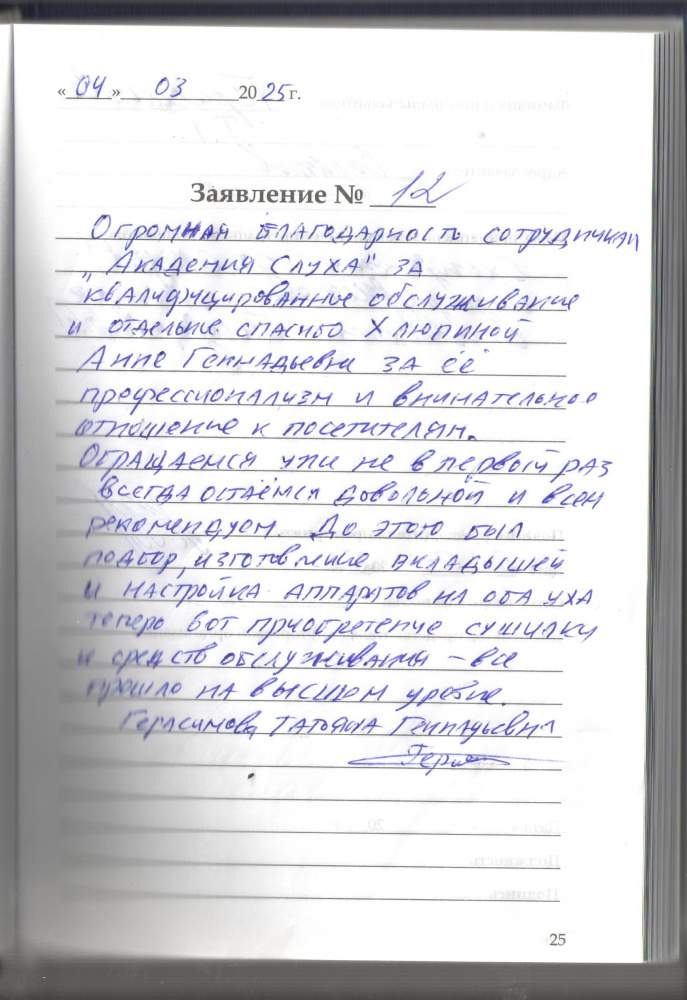 « 04 » 03 2025 г.
Заявление № 12
Огромная благодарность сотрудникам
"Академия Слуха" за
квалифицированное обслуживание
и отдельное спасибо Хлюпиной
Анне Геннадьевне за её
профессионализм и внимательное
отношение к посетителям.
Обращаемся уже не в первый раз
всегда остаёмся довольной и всем
рекомендуем. До этого был
подбор, изготовление вкладышей
и настройка аппаратов на оба уха
теперь вот приобретение сушилки
и средств обслуживания – все
прошло на высшем уровне.
Герасимова Татьяна Геннадьевна
Гера
25